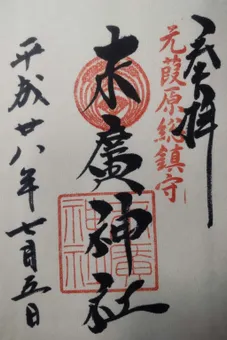 奉拝
元葭原総鎮守
末廣神社
平成廿八年七月五日